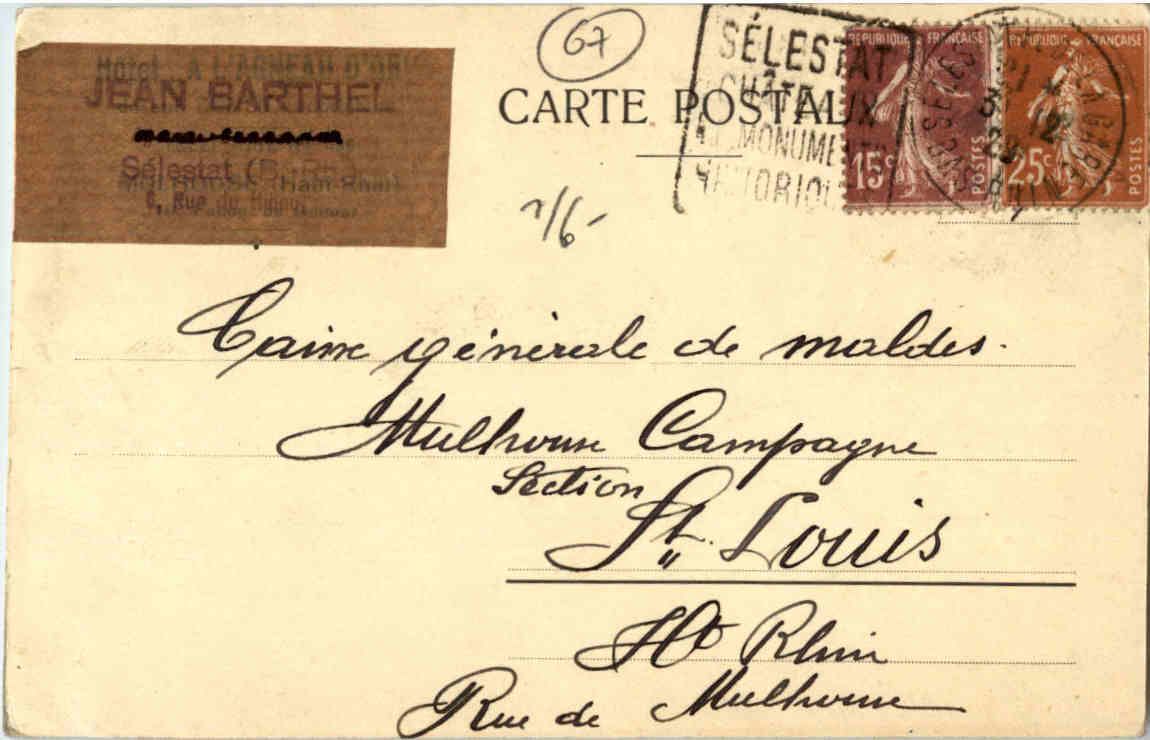 67
Hôtel A L'AGNEAU D'OR
JEAN BARTHEL
Sélestat (B.-Rh.)
MULHOUSE (Haut-Rhin)
6, Rue du
CARTE POSTALE
SÉLESTAT
CHÂTEAUX
MONUMENTS
HISTORIQUES
REPUBLIQUE FRANÇAISE
15c
POSTES
REPUBLIQUE FRANÇAISE
25c
POSTES
1/6-
Caisse générale de maldes.
Mulhouse Campagne
Section
St. Louis
Ht Rhin
Rue de Mulhouse